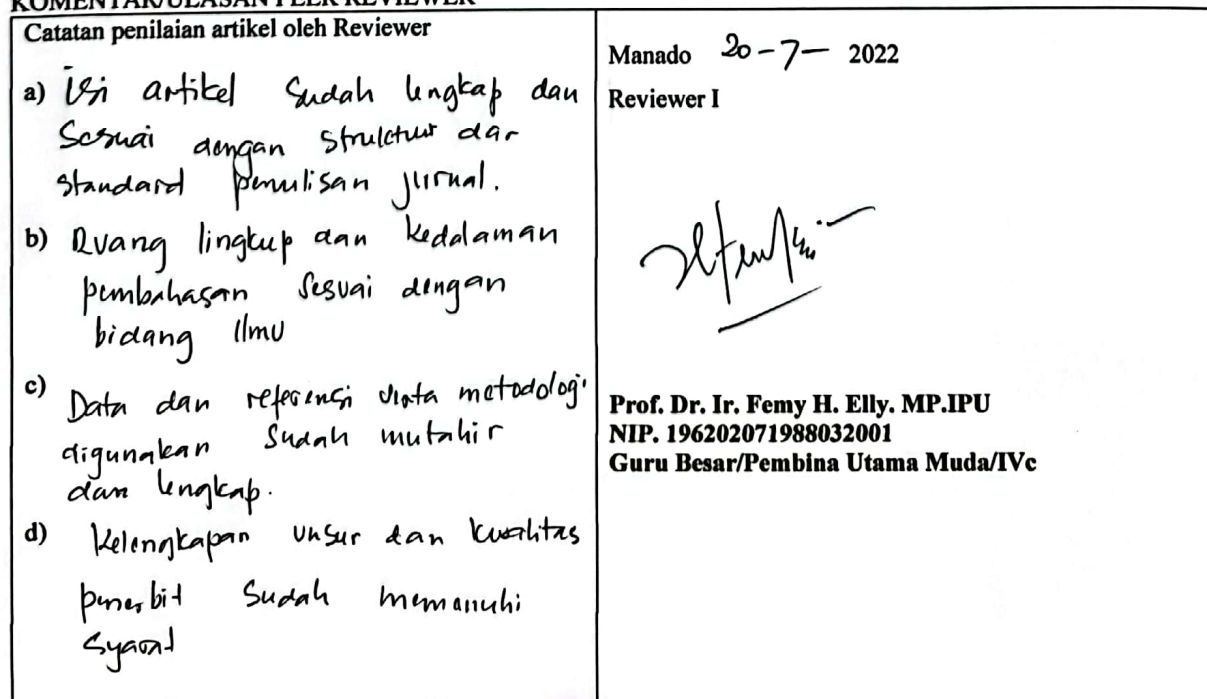 KOMENTAR/ULASAN PEER REVIEWER
Catatan penilaian artikel oleh Reviewer
a) Isi artikel sudah lengkap dan
Sesuai dengan struktur dar
standard penulisan jurnal.
b) Ruang lingkup dan kedalaman
pembahasan sesuai dengan
bidang Ilmu
c) Data dan referensi metodologi
digunakan sudah mutahir
dan lengkap.
d) Kelengkapan unsur dan kualitas
penerbit sudah memanuhi
Syarat
Manado 20-7- 2022
Reviewer I
Prof. Dr. Ir. Femy H. Elly. MP.IPU
NIP. 196202071988032001
Guru Besar/Pembina Utama Muda/IVc